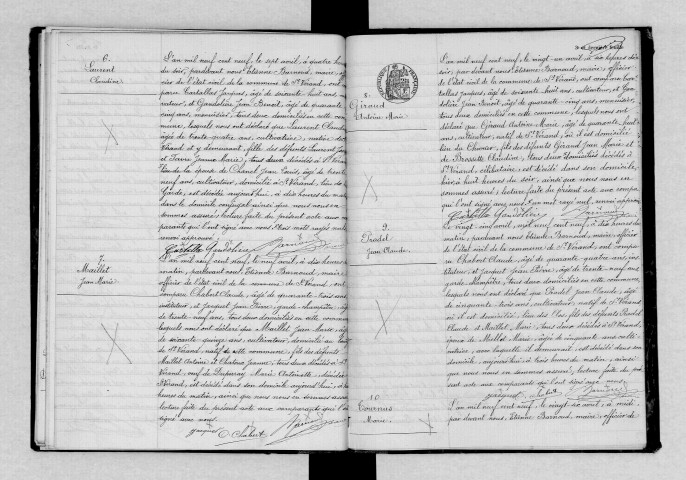 6.
Laurent
Claudine
L'an mil neuf cent neuf, le sept avril, à quatre heures
du soir, pardevant nous Etienne Barnoud, maire, officier
de l'état civil de la commune de St Vérand, ont com-
paru Jacques, âgé de soixante huit ans, cul-
tivateur, et Gaudolière Jean Benoit, âgé de quarante
cinq ans, menuisier, tous deux domiciliés en cette com-
mune, lesquels nous ont déclaré que Laurent Claudine
âgée de trente quatre ans, cultivatrice, native de St
Vérand et y demeurant, fille des défunts Laurent Jean
et Jeanne Marie, tous deux décédés à St Vérand
de Chanel Jean Louis, âgé de trente
neuf ans, cultivateur, domicilié à St Vérand, lieu de la
Garde, est décédée aujourd'hui, à dix heures du matin
dans le domicile conjugal ainsi que nous nous en
sommes assuré; lecture faite du présent acte aux com-
parants qui l'ont signé avec nous
renvoi approuvé.
7.
Maillet
Jean Marie
L'an mil neuf cent neuf, le neuf avril, à dix heures du
matin, pardevant nous, Etienne Barnoud, maire
officier de l'état civil de la commune de St Vérand, ont
comparu Chabert Claude, âgé de quarante trois ans
instituteur, et Jacquet Jean Pierre, garde-champêtre, âgé
de trente neuf ans, tous deux domiciliés en cette commune
lesquels nous ont déclaré que Maillet Jean Marie, âgé
de soixante quinze ans, cultivateur, domicilié au
de St Vérand, natif de cette commune, fils des défunts
Maillet Antoine et Jeanne, tous deux décédés à St
Vérand, veuf de Marie Antoinette, décédée
St Vérand, est décédé dans son domicile aujourd'hui, à
heures du matin, ainsi que nous nous en sommes assuré
lecture faite du présent acte aux comparants qui l'ont
signé avec nous.
Jacquet C. Chabert
8.
Giraud
Antoine Marie
L'an mil neuf cent neuf, le vingt-un avril à
du soir, par devant nous Etienne Barnoud, maire, officier
de l'état civil de la commune de St Vérand, ont comparu
Jacques, âgé de soixante huit ans, cultivateur, et Gau-
dolière Jean Benoit, âgé de quarante-cinq ans, menuisier,
tous deux domiciliés en cette commune, lesquels nous ont
déclaré que Giraud Antoine Marie, âgé de quarante huit
ans, cultivateur, natif de St Vérand, où il est domicilié
lieu du fils des défunts Giraud Jean Marie et
de Brossette Claudine, tous deux domiciliés décédés à
St Vérand, célibataire, est décédé dans son domicile,
à huit heures du soir, ainsi que nous nous en
sommes assuré; lecture faite du présent acte aux compa-
rants qui l'ont signé avec nous, renvoi approuvé
9.
Pradel
Jean Claude
Le vingt avril, mil neuf cent neuf, à dix heures du
matin, pardevant nous Etienne Barnoud, maire officier
de l'état civil de la commune de St Vérand, ont compa-
ru Chabert Claude, âgé de quarante-quatre ans, ins-
tituteur, et Jacquet Jean Pierre, âgé de trente-neuf ans
garde-champêtre, tous deux domiciliés en cette commune,
lesquels nous ont déclaré que Pradel Jean Claude, âgé
de cinquante-trois ans, cultivateur, natif de St Vérand
où il est domicilié, fils des défunts Pradel
Claude et Maillet Marie, tous deux décédés à St Vérand,
époux de Marie, âgée de cinquante ans, culti-
vatrice, avec laquelle il demeurait, est décédé dans son
domicile, aujourd'hui, à trois heures du matin, ainsi
que nous nous en sommes assuré, lecture faite du pré-
sent acte aux comparants qui l'ont signé avec nous.
Jacquet Chabert
10.
Marie
L'an mil neuf cent neuf, le vingt avril, à midi
par devant nous, Etienne Barnoud, maire, officier de